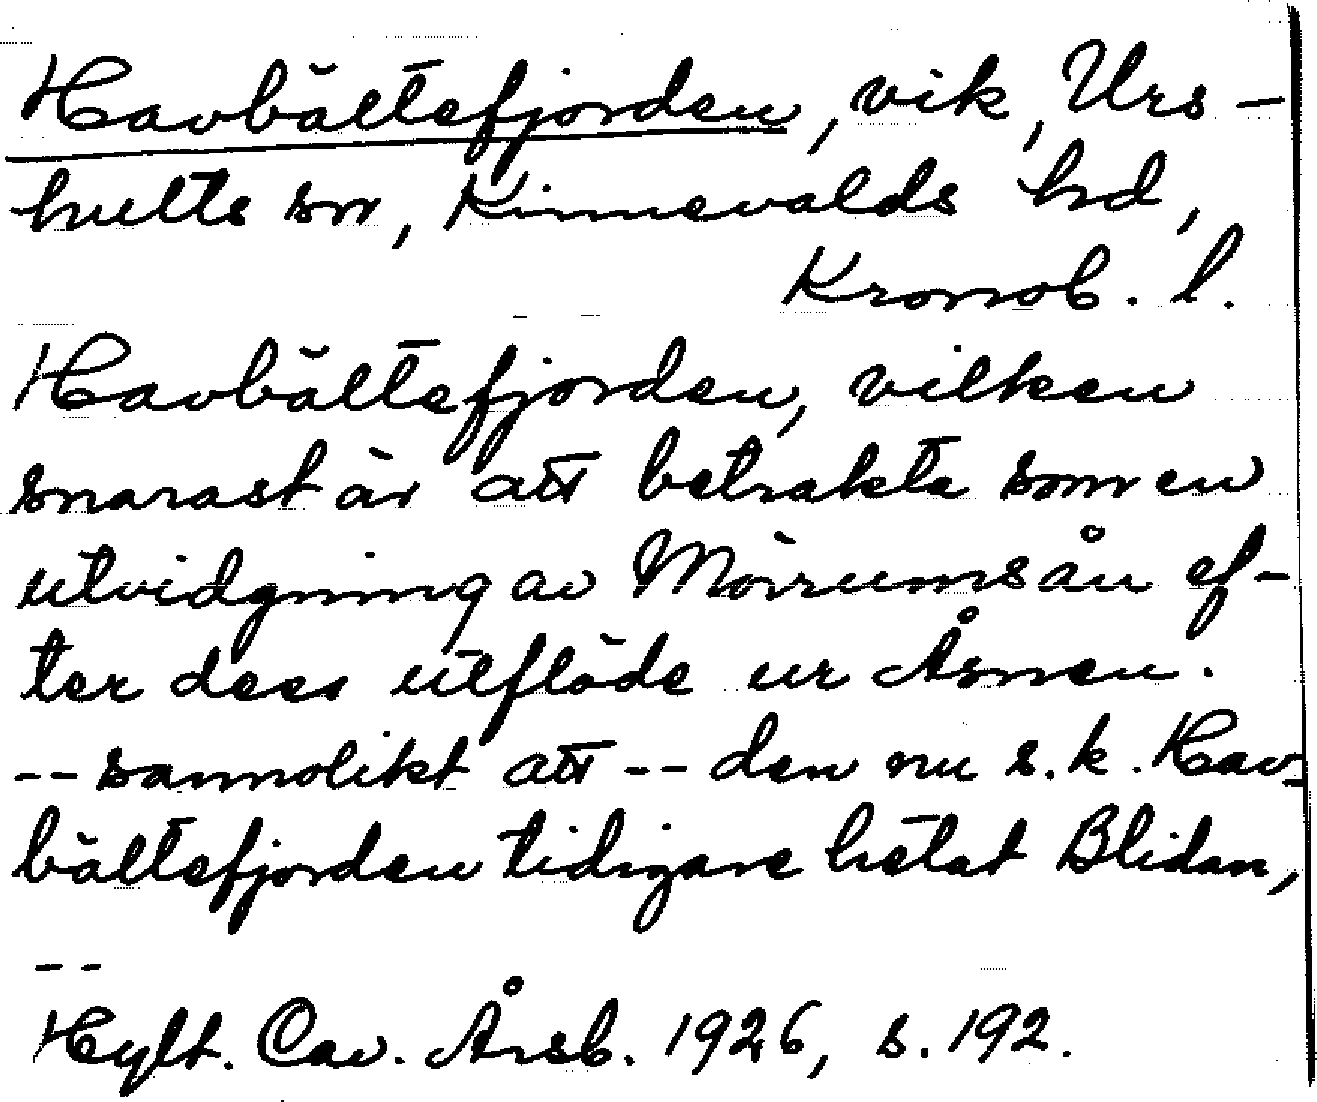 Havbältefjorden, vik, Urs-
hults sn, Kinnevalds hd,
Kronob. l.
Havbältefjorden, vilken
snarast är att betrakta som en
utvidgning av Mörrumsån ef-
ter dess utflöde ur Åsnen.
-- sannolikt att -- den nu s.k. Hav-
bältefjorden tidigare hetat Blidan,
--
Hylt. Cav. Årsb. 1926, s. 192.